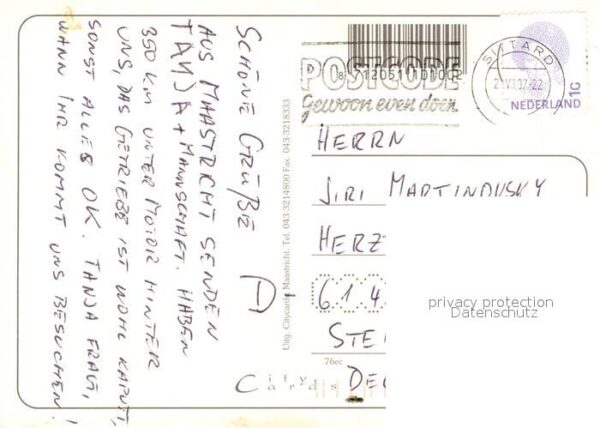 SCHÖNE GRÜßE
AUS MAASTRICHT SENDEN
TANJA + MANNSCHAFT. HABEN
350 KM UNTER MOTOR HINTER
UNS, DAS GETRIEBE IST WOHL KAPUTT,
SONST ALLES OK. TANJA FRAGT,
WANN IHR KOMMT UNS BESUCHEN!
Uitg. Citycards Maastricht. Tel. 043-3214800 Fax. 043-3218333
8 712051 101002
POSTCODE
Gewoon even doen.
SITTARD
NEDERLAND
HERRN
JIRI MARTINOVSKY
HERZ
6 1 4
STE
DE
76ec
Citycards
privacy protection
Datenschutz